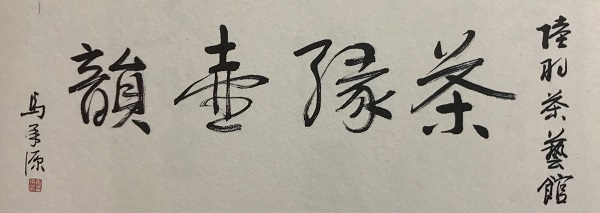 陸羽茶藝館
茶緣壺韻
馬承源